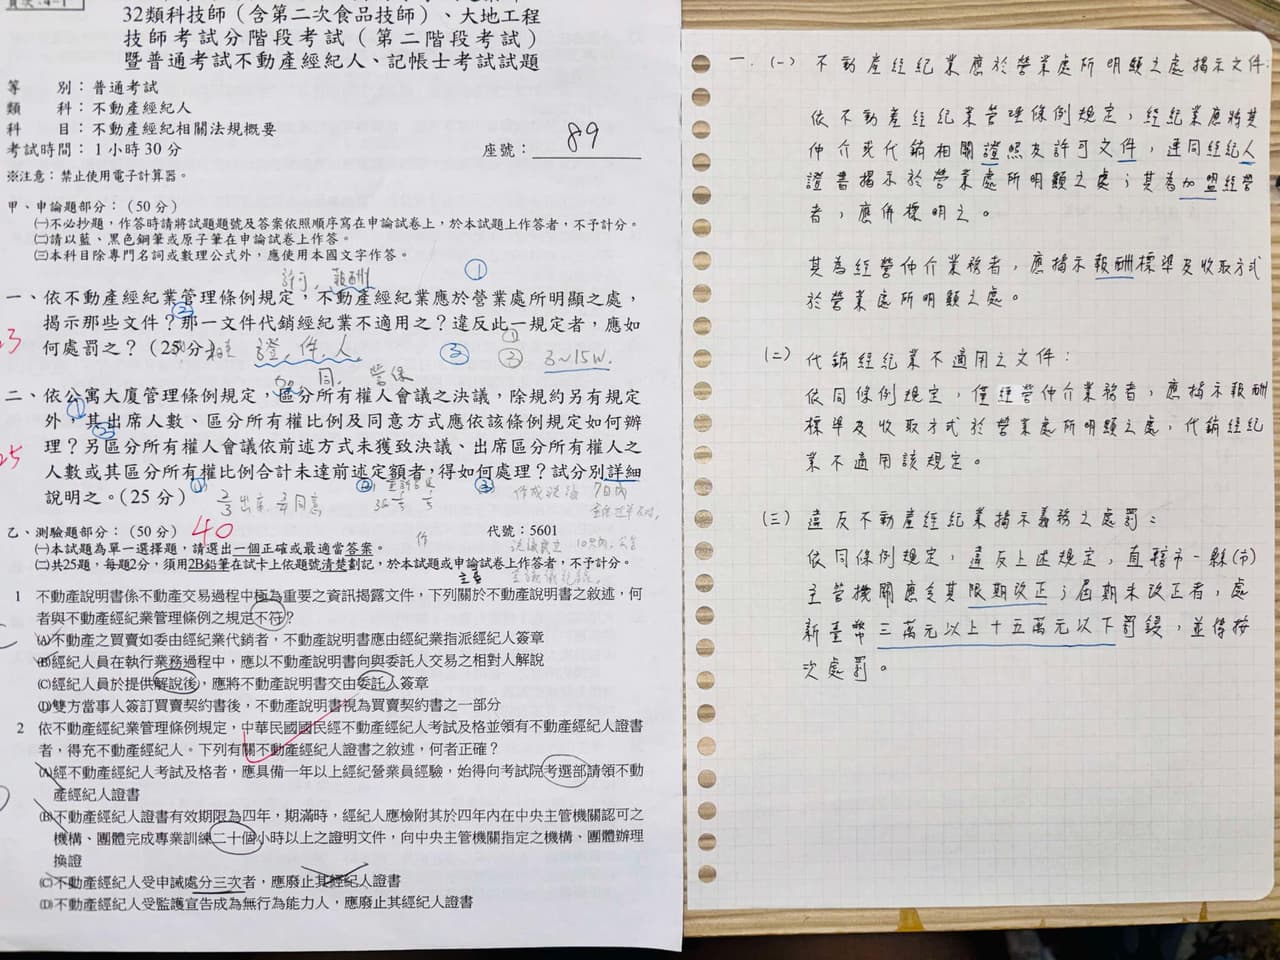 頁次：4-1
32類科技師（含第二次食品技師）、大地工程
技師考試分階段考試（第二階段考試）
暨普通考試不動產經紀人、記帳士考試試題
等　　別：普通考試
類　　科：不動產經紀人
科　　目：不動產經紀相關法規概要
考試時間：1小時30分
座號：89
※注意：禁止使用電子計算器。
甲、申論題部分：（50分）
㈠不必抄題，作答時請將試題題號及答案依照順序寫在申論試卷上，於本試題上作答者，不予計分。
㈡請以藍、黑色鋼筆或原子筆在申論試卷上作答。
㈢本科目除專門名詞或數理公式外，應使用本國文字作答。
許可、報酬
①
一、依不動產經紀業管理條例規定，不動產經紀業應於營業處所明顯之處，
揭示那些文件？那一文件代銷經紀業不適用之？違反此一規定者，應如
何處罰之？（25分）
②
23
證、件、人
③
3~15W.
同.
二、依公寓大廈管理條例規定，區分所有權人會議之決議，除規約另有規定
外，其出席人數、區分所有權比例及同意方式應依該條例規定如何辦
理？另區分所有權人會議依前述方式未獲致決議、出席區分所有權人之
人數或其區分所有權比例合計未達前述定額者，得如何處理？試分別詳細
說明之。（25分）
①
②
25
2/3出席
3/4同意
③
7日內
乙、測驗題部分：（50分）
40
代號：5601
㈠本試題為單一選擇題，請選出一個正確或最適當答案。
㈡共25題，每題2分，須用2B鉛筆在試卡上依題號清楚劃記，於本試題或申論試卷上作答者，不予計分。
1 不動產說明書係不動產交易過程中極為重要之資訊揭露文件，下列關於不動產說明書之敘述，何
者與不動產經紀業管理條例之規定不符？
(A)不動產之買賣如委由經紀業代銷者，不動產說明書應由經紀業指派經紀人簽章
(B)經紀人員在執行業務過程中，應以不動產說明書向與委託人交易之相對人解說
(C)經紀人員於提供解說後，應將不動產說明書交由委託人簽章
(D)雙方當事人簽訂買賣契約書後，不動產說明書視為買賣契約書之一部分
2 依不動產經紀業管理條例規定，中華民國國民經不動產經紀人考試及格並領有不動產經紀人證書
者，得充不動產經紀人。下列有關不動產經紀人證書之敘述，何者正確？
(A)經不動產經紀人考試及格者，應具備一年以上經紀營業員經驗，始得向考試院考選部請領不動
產經紀人證書
(B)不動產經紀人證書有效期限為四年，期滿時，經紀人應檢附其於四年內在中央主管機關認可之
機構、團體完成專業訓練二十個小時以上之證明文件，向中央主管機關指定之機構、團體辦理
換證
(C)不動產經紀人受申誡處分三次者，應廢止其經紀人證書
(D)不動產經紀人受監護宣告成為無行為能力人，應廢止其經紀人證書
一. (一) 不動產經紀業應於營業處所明顯之處揭示文件：
依不動產經紀業管理條例規定，經紀業應將其
仲介或代銷相關證照及許可文件，連同經紀人
證書揭示於營業處所明顯之處；其為加盟經營
者，應併標明之。
其為經營仲介業務者，應揭示報酬標準及收取方式
於營業處所明顯之處。
(二) 代銷經紀業不適用之文件：
依同條例規定，僅經營仲介業務者，應揭示報酬
標準及收取方式於營業處所明顯之處，代銷經紀
業不適用該規定。
(三) 違反不動產經紀業揭示義務之處罰：
依同條例規定，違反上述規定，直轄市、縣(市)
主管機關應令其限期改正；屆期未改正者，處
新臺幣三萬元以上十五萬元以下罰鍰，並得按
次處罰。